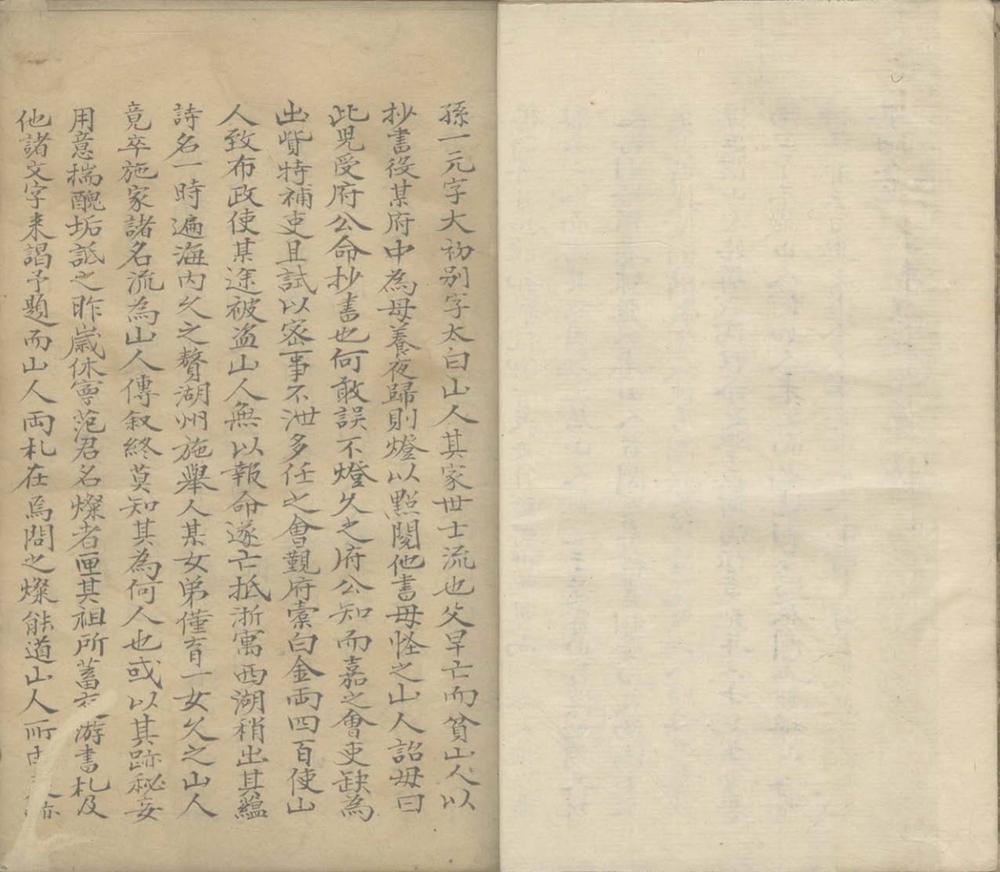 孫一元字大初别字太白山人其家世士流也父早亡而貧山人以
抄書役某府中為母養夜歸則燈以㸃閲他書母怪之山人詔母曰
此児受府公命抄書也何敢誤不燈久之府公知而嘉之會吏缺為
出貲特補吏且試以宻事不泄多任之會覲府槖白金両四百使山
人致布政使某途被盗山人無以報命遂亡抵浙寓西湖稍出其藴
詩名一時遍海内久之贅湖州施舉人某女弟僅育一女久之山人
竟卒施家諸名流為山人傳叙終莫知其為何人也或以其跡秘妄
用意揣醜垢詆之昨嵗休寧范君名燦者匣其祖所蓄游書札及
他諸文字来謁予題而山人両札在焉問之燦能道山人所